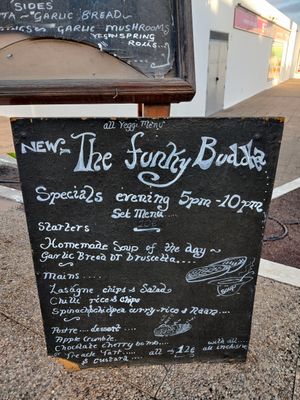 SIDES
~ GARLIC BREAD
GARLIC MUSHROOMS
VEG SPRING
ROLLS
all veggi Menu
NEW~ The funky Budda
Specials evening 5pm-10pm
Set Menu
Starters
Homemade Soup of the day ~
Garlic Bread or brusetta....
Mains....
Lasagne chips & Salad
Chilli rice & chips
curry-rice & Naan....
Postre ... dessert
Apple Crumble.
Chocolate cherry bomb...
Peach Tart
& Custard
all → 12€
with all
an inclusive